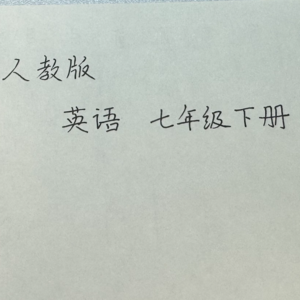 人教版
英语 七年级下册